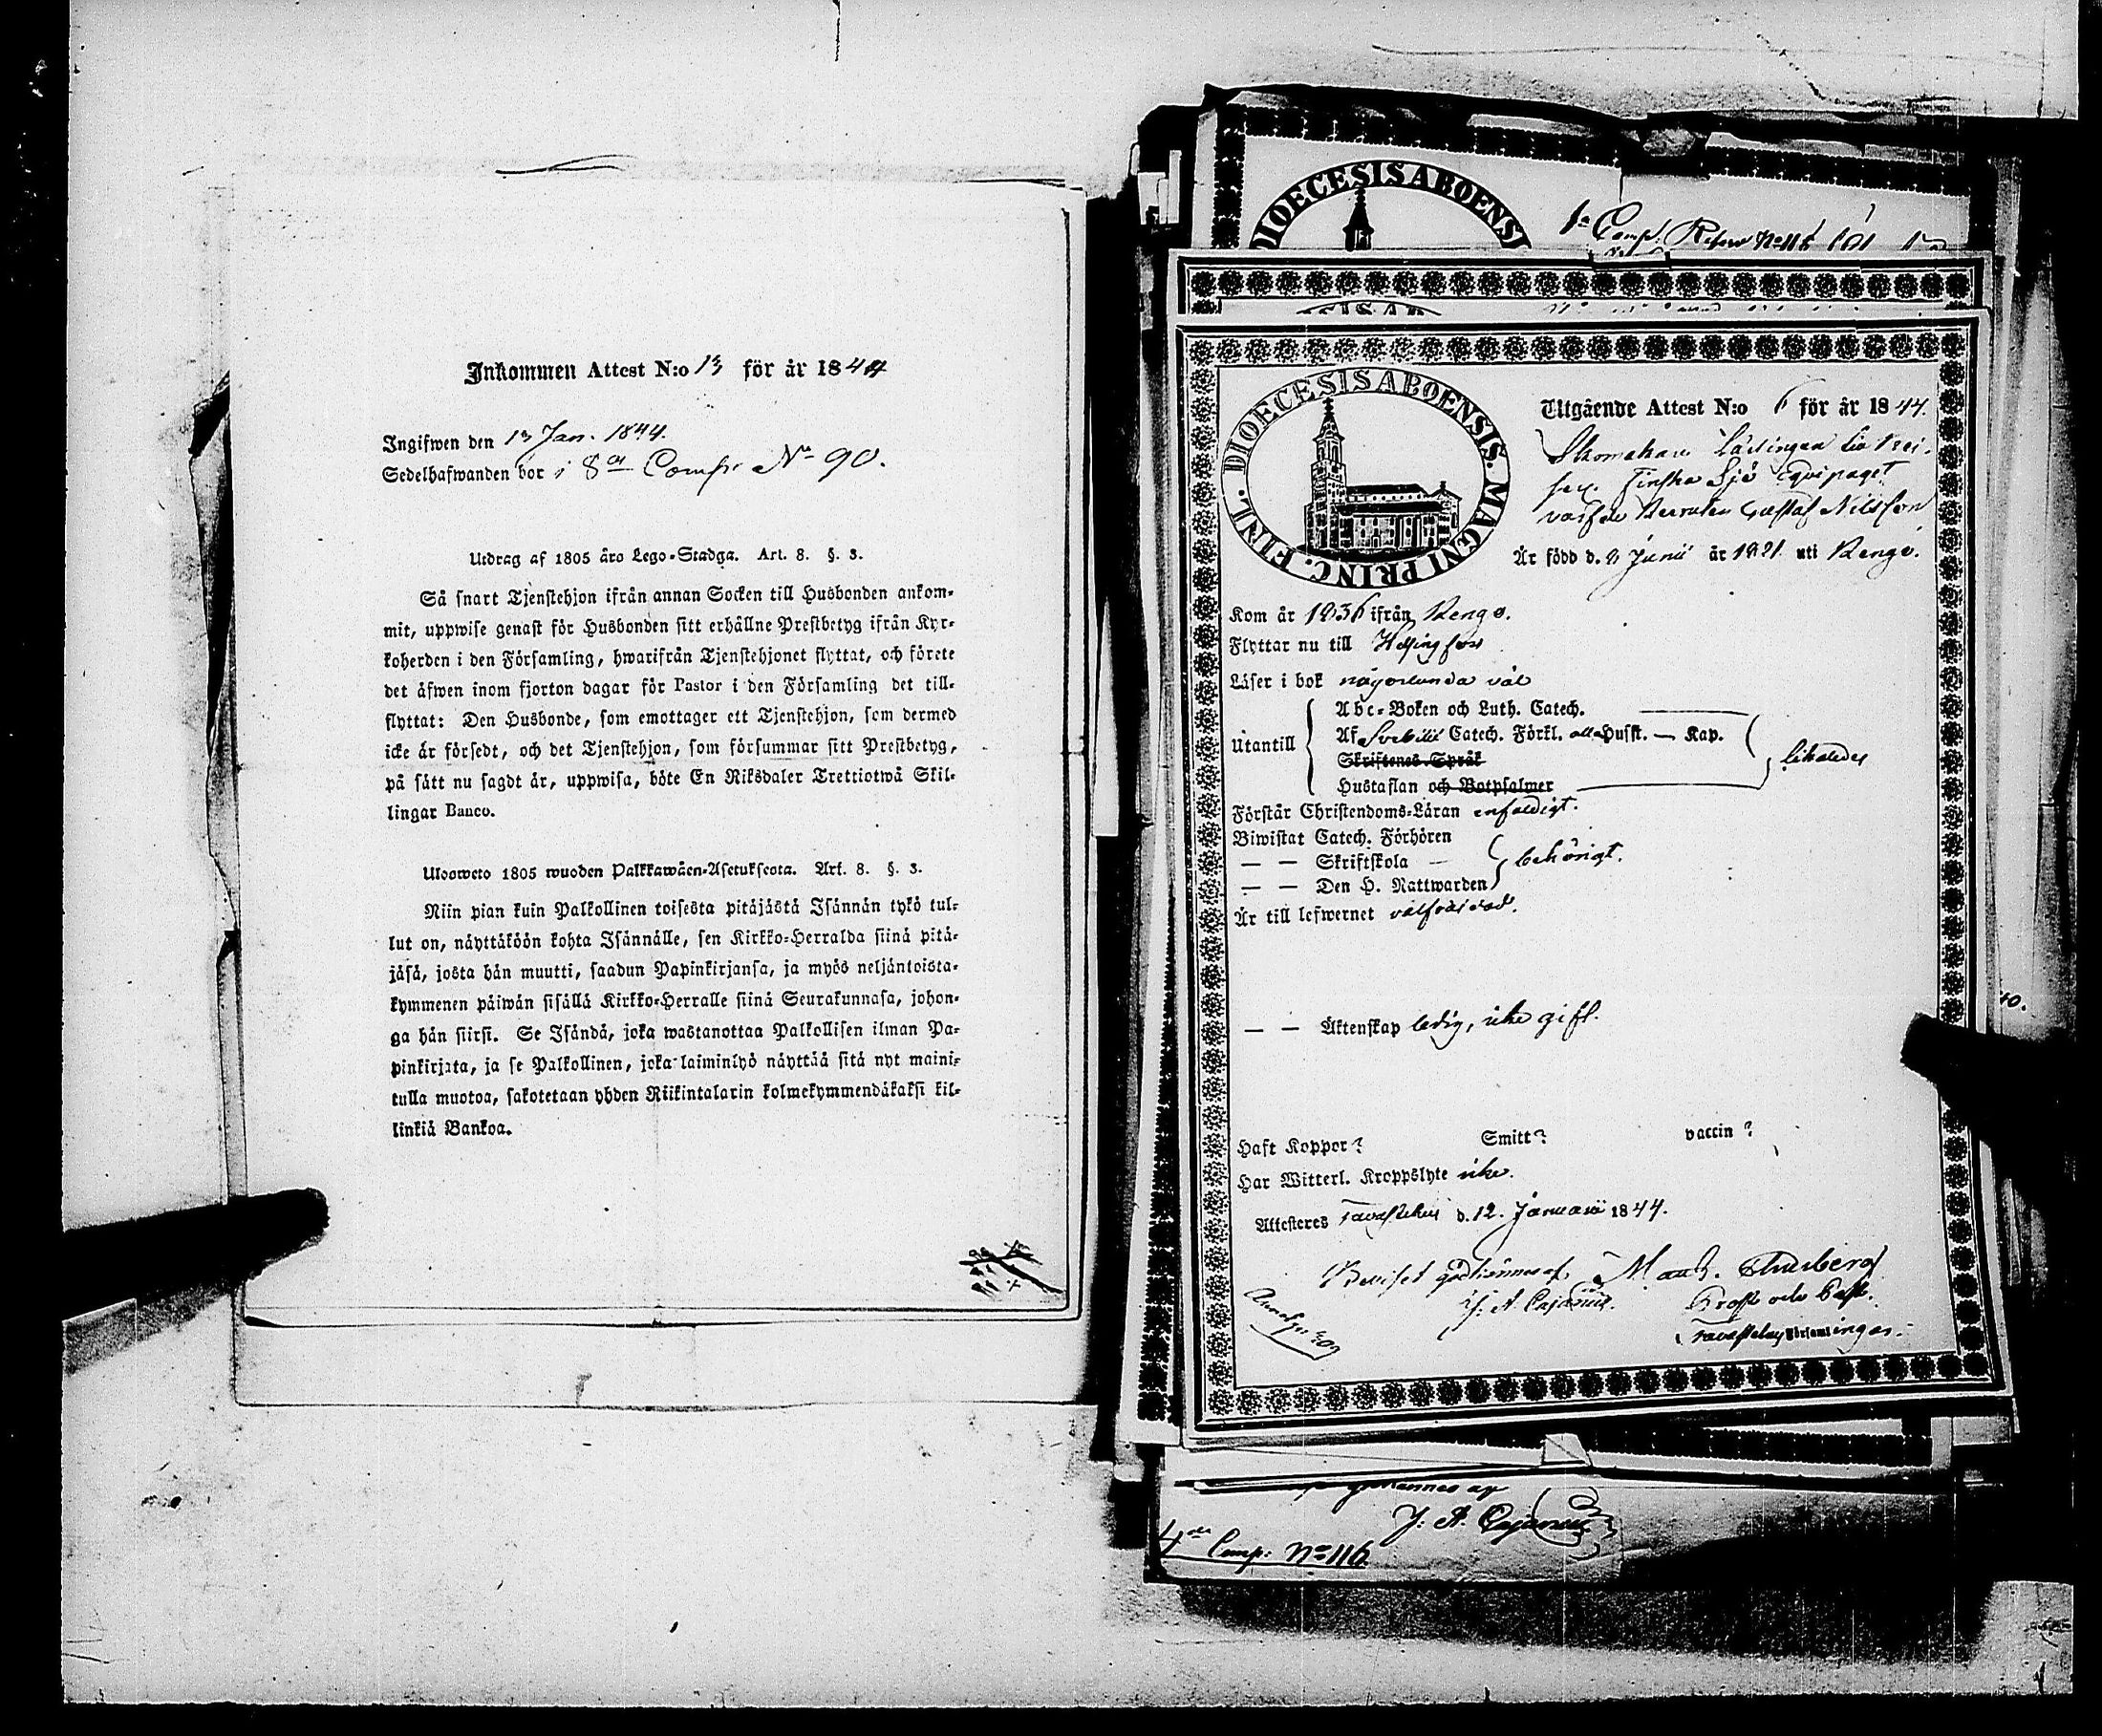 Inkommen Attest N:o 13 för år 1844
Ingifwen den 13 Jan. 1844.
Sedelhafwanden bor i 8de Comp: No 90.
Utdrag af 1805 års Lego-Stadga. Art. 8. §. 3.
Så snart Tjenstehjon ifrån annan Socken till Husbonden ankom-
mit, uppwise genast för Husbonden sitt erhållne Prestbetyg ifrån Kyr-
koherden i den Församling, hwarifrån Tjenstehjonet flyttat, och förete
det äfwen inom fjorton dagar för Pastor i den Församling det till-
flyttat: Den Husbonde, som emottager ett Tjenstehjon, som dermed
icke är försedt, och det Tjenstehjon, som försummar sitt Prestbetyg,
på sätt nu sagdt är, uppwisa, böte En Riksdaler Trettiotwå Skil-
lingar Banco.
Uloosweto 1805 wuoden Palkkawäen-Asetuksesta. Art. 8. §. 3.
Niin pian kuin Palkollinen toisesta pitäjästä Isännän tykö tul-
lut on, näyttäköön kohta Isännälle, sen Kirkko-Herralda siinä pitä-
jäsä, josta hän muutti, saadun Papinkirjansa, ja myös neljäntoista-
kymmenen päiwän sisällä Kirkko-Herralle siinä Seurakunnasa, johon-
ga hän siirsi. Se Isändä, joka wastanottaa Palkollisen ilman Pa-
pinkirjata, ja se Palkollinen, joka laiminlyö näyttää sitä nyt maini-
tulla muotoa, sakotetaan yhden Riikintalarin kolmekymmendäkaksi kil-
linkiä Bankoa.
DIOECESIS ABOENSI
1a Comp. No 115
DIOECESIS ABOENSIS. MAGNI PRINC. FINL.
Utgående Attest N:o 6 för år 1844.
Skomakare Lärlingen Kei-
serl. Finska Sjö Equipaget
varfwe Recruten Gustaf Nilsson
Är född d. 2 Junii år 1821 uti Rengo.
Kom år 1836 ifrån Rengo.
Flyttar nu till Helsingfors
Läser i bok någorlunda väl
Utantill
Abc-Boken och Luth. Catech.
Af Svebilii Catech. Förkl. alla Husst. — Kap.
Skriftenes Språk
Hustaflan och Botpsalmer
likaledes
Förstår Christendoms-Läran enfaldigt.
Biwistat Catech. Förhören
— — Skriftskola —
— — Den H. Nattwarden
behörigt.
Är till lefwernet välfräjdad.
— — Äktenskap ledig, icke gift.
Haft Koppor? Smitt? vaccin?
Har Witterl. Kroppslyte icke.
Attesteres Tavastehus d. 12. Januarii 1844.
Beviset godkännes af
J. A. Cajanus.
Prost och Past.
Tavastehus Församlingar.
godkännes af
J. A. Cajanus
4de Comp: No 116